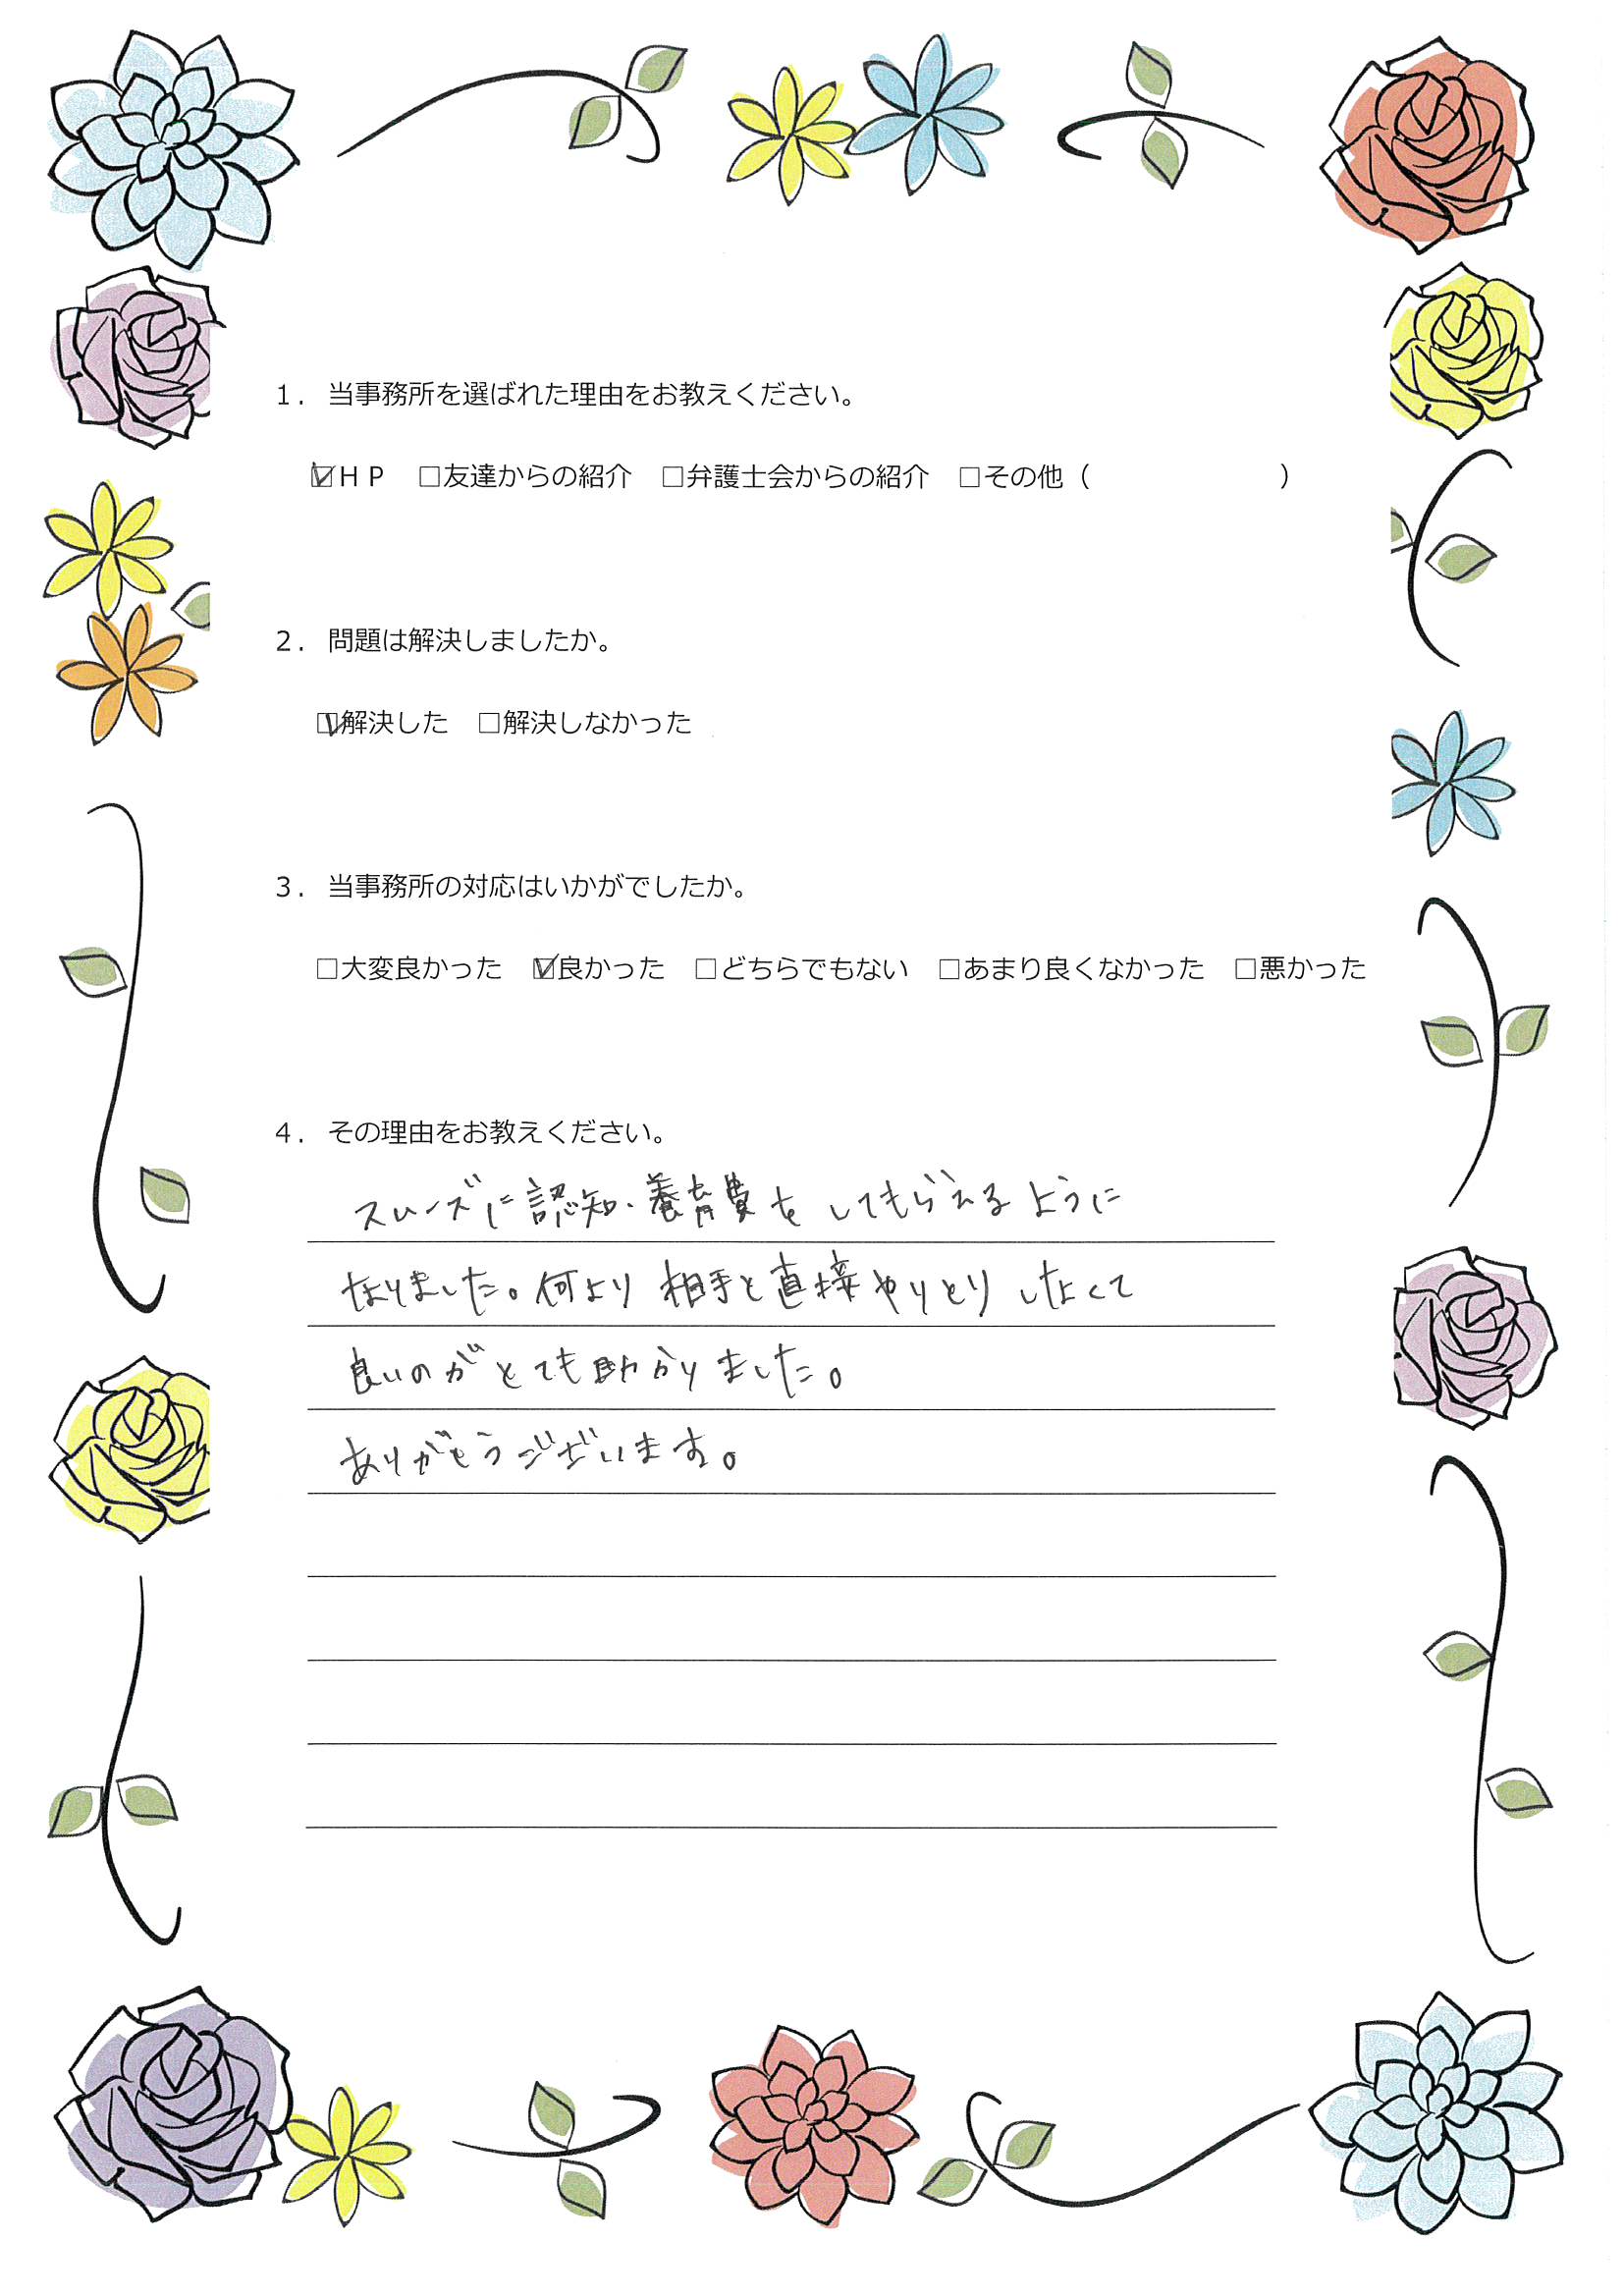 １．当事務所を選ばれた理由をお教えください。
☑ＨＰ　□友達からの紹介　□弁護士会からの紹介　□その他（　　　　　　　）
２．問題は解決しましたか。
☑解決した　□解決しなかった
３．当事務所の対応はいかがでしたか。
□大変良かった　☑良かった　□どちらでもない　□あまり良くなかった　□悪かった
４．その理由をお教えください。
スムーズに認知・養育費をしてもらえるように
なりました。何より相手と直接やりとりしなくて
良いのがとても助かりました。
ありがとうございます。